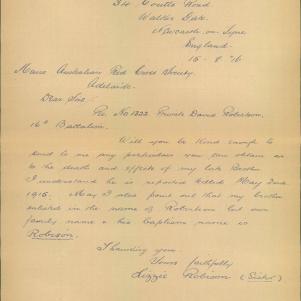 34 Coutts Road
Walker Gate
Newcastle-on-Tyne
England
15-8-16
Australian Red Cross Society
Adelaide.
Dear Sir
Re. No 1322 Private David Robertson.
16th Battalion.
Will you be kind enough to
send to me any particulars you can obtain as
to the death and effects of my late Brother
I understand he is reported killed May 2nd
1915. May I also point out that my brother
enlisted in the name of Robertson but our
family name & his Baptism name is
Robison.
Thanking you.
Yours faithfully
Lizzie Robison (Sister)